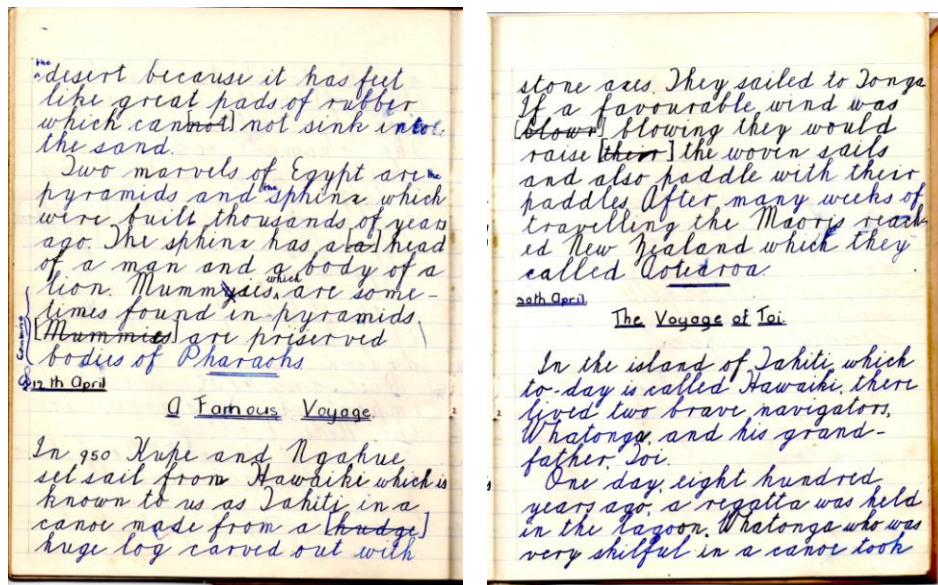 the desert because it has feet
like great pads of rubber
which can[not] not sink into
the sand.
Two marvels of Egypt are the
pyramids and the sphinx which
were built thousands of years
ago. The sphinx has a [a] head
of a man and a body of a
lion. Mummies, which are some-
times found in pyramids
[Mummies] are preserved
bodies of Pharaohs.
Combine
12th April
A Famous Voyage
In 950 Kupe and Ngahue
set sail from Hawaiki which is
known to us as Tahiti in a
canoe made from a [hudge]
huge log carved out with
stone axes. They sailed to Tonga
If a favourable wind was
[blowr] blowing they would
raise [their] the woven sails
and also paddle with their
paddles. After many weeks of
travelling the Maoris reach-
ed New Zealand which they
called Aotearoa.
20th April
The Voyage of Toi
In the island of Tahiti which
to-day is called Hawaiki, there
lived two brave navigators,
Whatonga and his grand-
father, Toi.
One day, eight hundred
years ago, a regatta was held
in the lagoon. Whatonga who was
very skilful in a canoe took